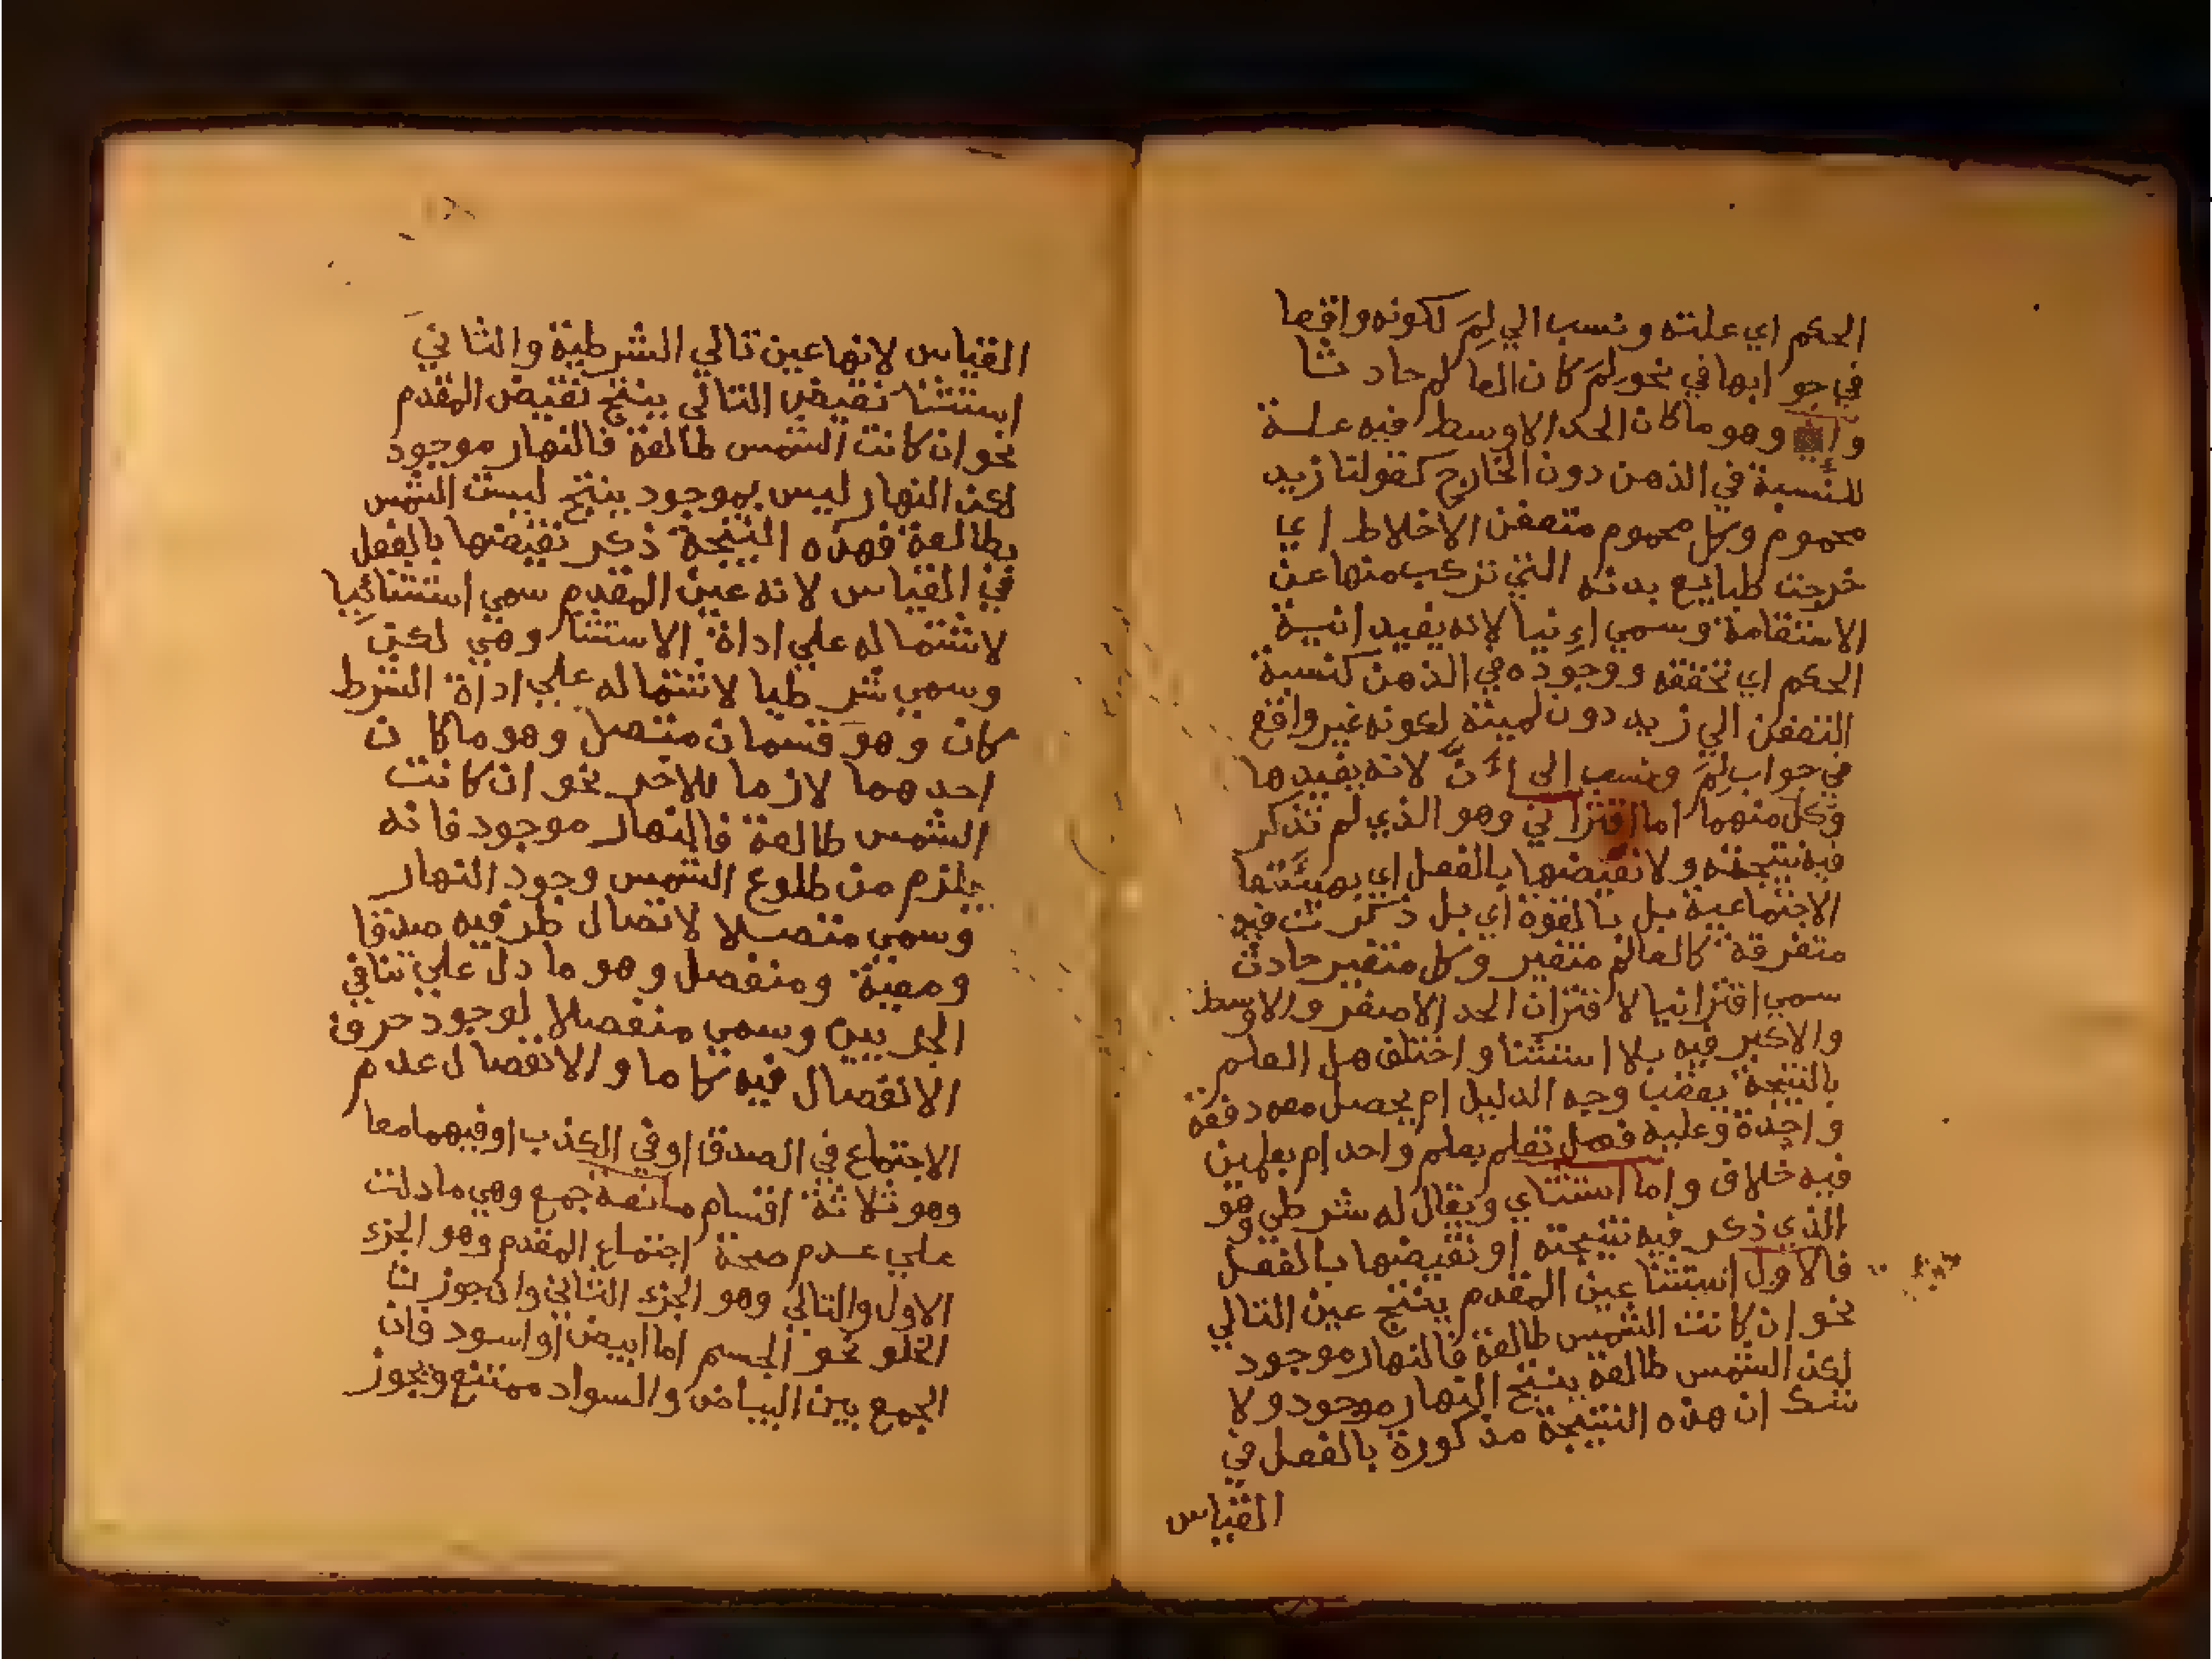 الحكم اي علته ونسب الي لِمَ لكونه واقعا
في جو ابها في نحو لمَ كان العالم حاد ثا
و وهو ماكان الحد الاوسط فيه علة
للنسبة في الذهن دون الخارج كقولنا زيد
محموم وكل محموم متعفن الاخلاط اي
خرجت طبايع بدنه التي تركب منها عن
الاستقامة وسمي اِنيا لانه يفيد انية
الحكم اي تحققه ووجوده في الذهن كنسبة
التعفن الي زيد دون لميته لكونه غير واقع
في جواب لِمَ ونسب الى اِنَّ لانه يفيدها
وكل منهما اما اقتراني وهو الذي لم تذكر
فيه نتيجته ولا نقيضها بالفعل اي بهيئتها
الاجتماعية بل بالقوة اي بل ذكرت فيه
متفرقة كالعالم متغير وكل متغير حادث
سمي اقترانيا لاقتران الحد الاصغر والاوسط
والاكبر فيه بلا استثنا واختلف هل العلم
بالنتيجة يعقب وجه الدليل ام يحصل معه دفعة
واحدة وعليه فهل تعلم بعلم واحد ام بعلمين
فيه خلاف واما استثناي ويقال له شرطي وهو
الذي ذكر فيه نتيجته او نقيضها بالفعل
فالاول استثنا عين المقدم ينتج عين التالي
نحو ان كانت الشمس طالعة فالنهار موجود
لكن الشمس طالعة ينتج النهار موجود ولا
شك ان هذه النتيجة مذكورة بالفعل في
القياس
القياس لانها عين تالي الشرطية والثاني
استثنا نقيض التالي ينتج نقيض المقدم
نحو ان كانت الشمس طالعة فالنهار موجود
لكن النهار ليس بموجود ينتج ليست الشمس
بطالعة فهذه النتيجة ذكر نقيضها بالفعل
في القياس لانه عين المقدم سمي استثنائيا
لاشتماله علي اداة الاستثنا وهي لكن
وسمي شرطيا لاشتماله علي اداة الشرط
كان وهو قسمان متصل وهو ماكان
احدهما لازما للاخر نحو ان كانت
الشمس طالعة فالنهار موجود فانه
يلزم من طلوع الشمس وجود النهار
وسمي متصلا لاتصال طرفيه صدقا
ومعية ومنفصل وهو ما دل علي تنافي
الجزيين وسمي منفصلا لوجود حرف
الانفصال فيه كاما و الانفصال عدم
الاجتماع في الصدق اوفي الكذب اوفيهما معا
وهو ثلاثة اقسام مانعة جمع وهي مادلت
علي عدم صحة اجتماع المقدم وهو الجزء
الاول والتالي وهو الجزء الثاني وان جوزت
الخلو نحو الجسم اما ابيض او اسود فان
الجمع بين البياض والسواد ممتنع ويجوز